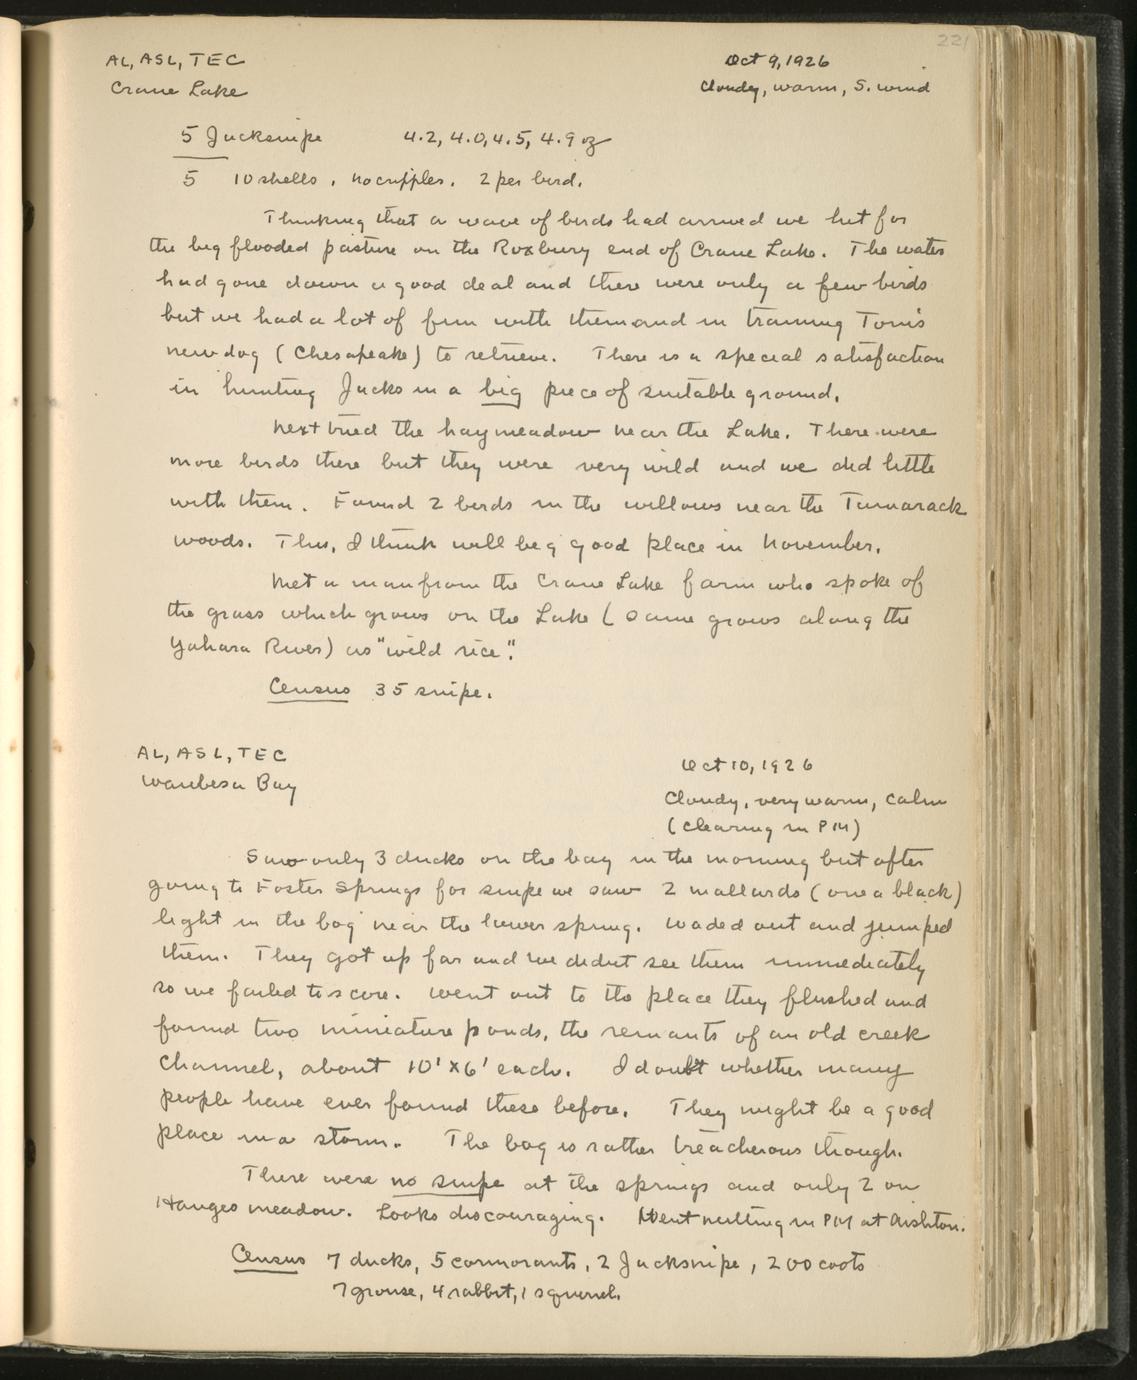 221
AL, ASL, TEC Oct 9, 1926
Crane Lake Cloudy, warm, S. wind
5 Jacksnipe 4.2, 4.0, 4.5, 4.9 oz
5 10 shells, no cripples. 2 per bird.
Thinking that a wave of birds had arrived we hit for
the big flooded pasture on the Roxbury end of Crane Lake. The water
had gone down a good deal and there were only a few birds
but we had a lot of fun with them and in training Tom's
new dog (Chesapeake) to retrieve. There is a special satisfaction
in hunting Jacks in a big piece of suitable ground.
Next tried the hay meadow near the Lake. There were
more birds there but they were very wild and we did little
with them. Found 2 birds in the willows near the Tamarack
woods. This, I think will be a good place in November.
Met a man from the Crane Lake farm who spoke of
the grass which grows on the Lake (same grows along the
Yahara River) as "wild rice".
Census 35 snipe.
AL, ASL, TEC Oct 10, 1926
Waubesa Bay Cloudy, very warm, calm
(clearing in PM)
Saw only 3 ducks on the bay in the morning but after
going to Foster Springs for snipe we saw 2 mallards (one a black)
light in the bog near the lower spring. Waded out and jumped
them. They got up far and we didnt see them immediately
so we failed to score. Went out to the place they flushed and
found two miniature ponds, the remants of an old creek
channel, about 10' x 6' each. I doubt whether many
people have ever found these before. They might be a good
place in a storm. The bog is rather treacherous though.
There were no snipe at the springs and only 2 on
meadow. Looks discouraging. Went nutting in PM at Aishton.
Census 7 ducks, 5 cormorants, 2 Jacksnipe, 200 coots
7 grouse, 4 rabbit, 1 squirrel.